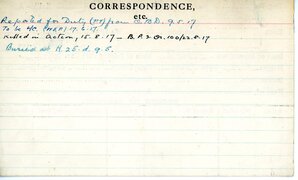 CORRESPONDENCE,
etc.
Reported for Duty from 9.5.17
To be
Killed in Action, 15.8.17 — B.P. 2 Or. 100/22.8.17
Buried at H.25.d.9.5.